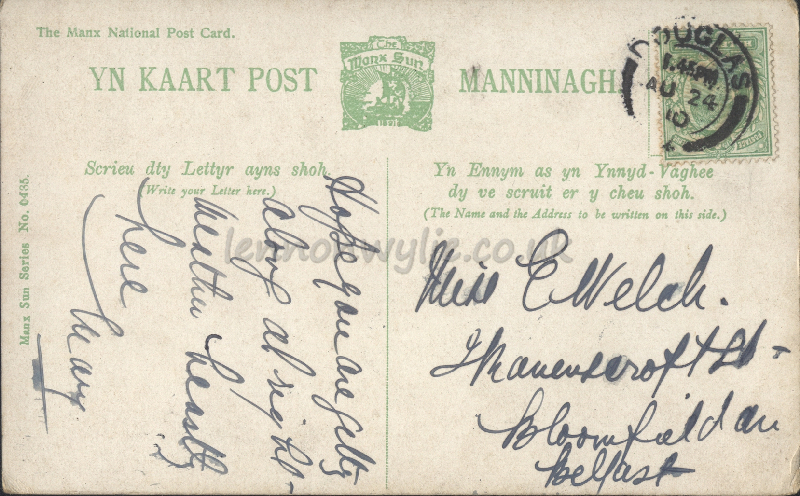 The Manx National Post Card.
YN KAART POST
The
Manx Sun
MANNINAGH.
DOUGLAS
1.45PM
AU 24
10
Scrieu dty Lettyr ayns shoh.
(Write your Letter here.)
Yn Ennym as yn Ynnyd-Vaghee
dy ve scruit er y cheu shoh.
(The Name and the Address to be written on this side.)
Manx Sun Series No. 0435.
Hope you are getting
along alright.
Weather beastly
here
Mary
Miss E Welch.
Ravenscroft St
Bloomfield Av
Belfast
lennonwylie.co.uk